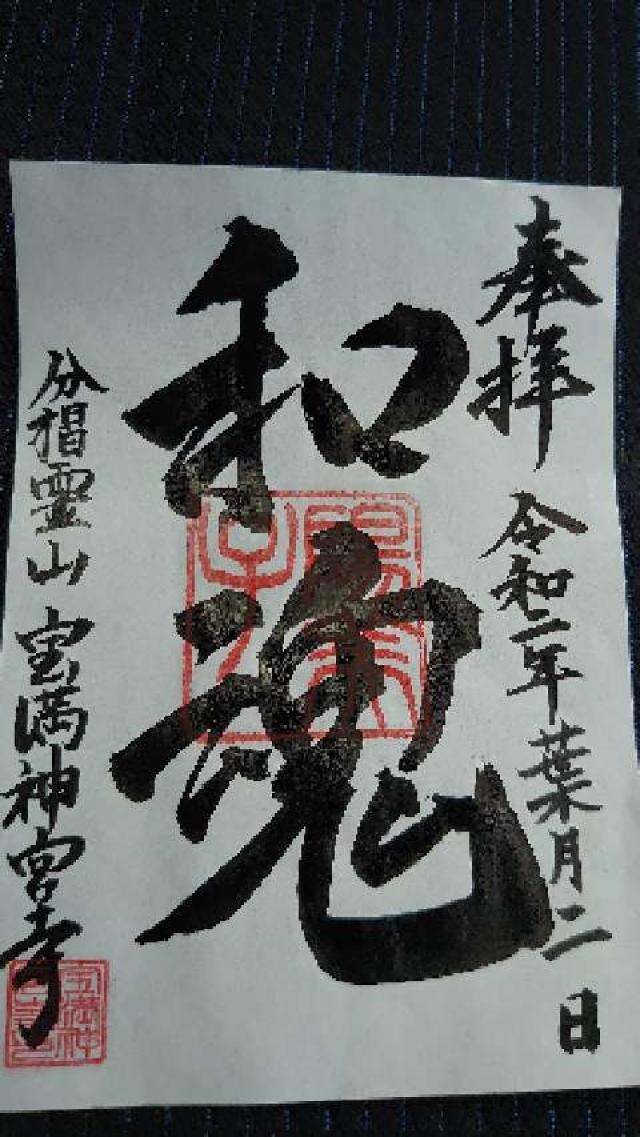 奉拝 令和二年葉月二日
和魂
分揩霊山 宝満神宮寺
宝満神